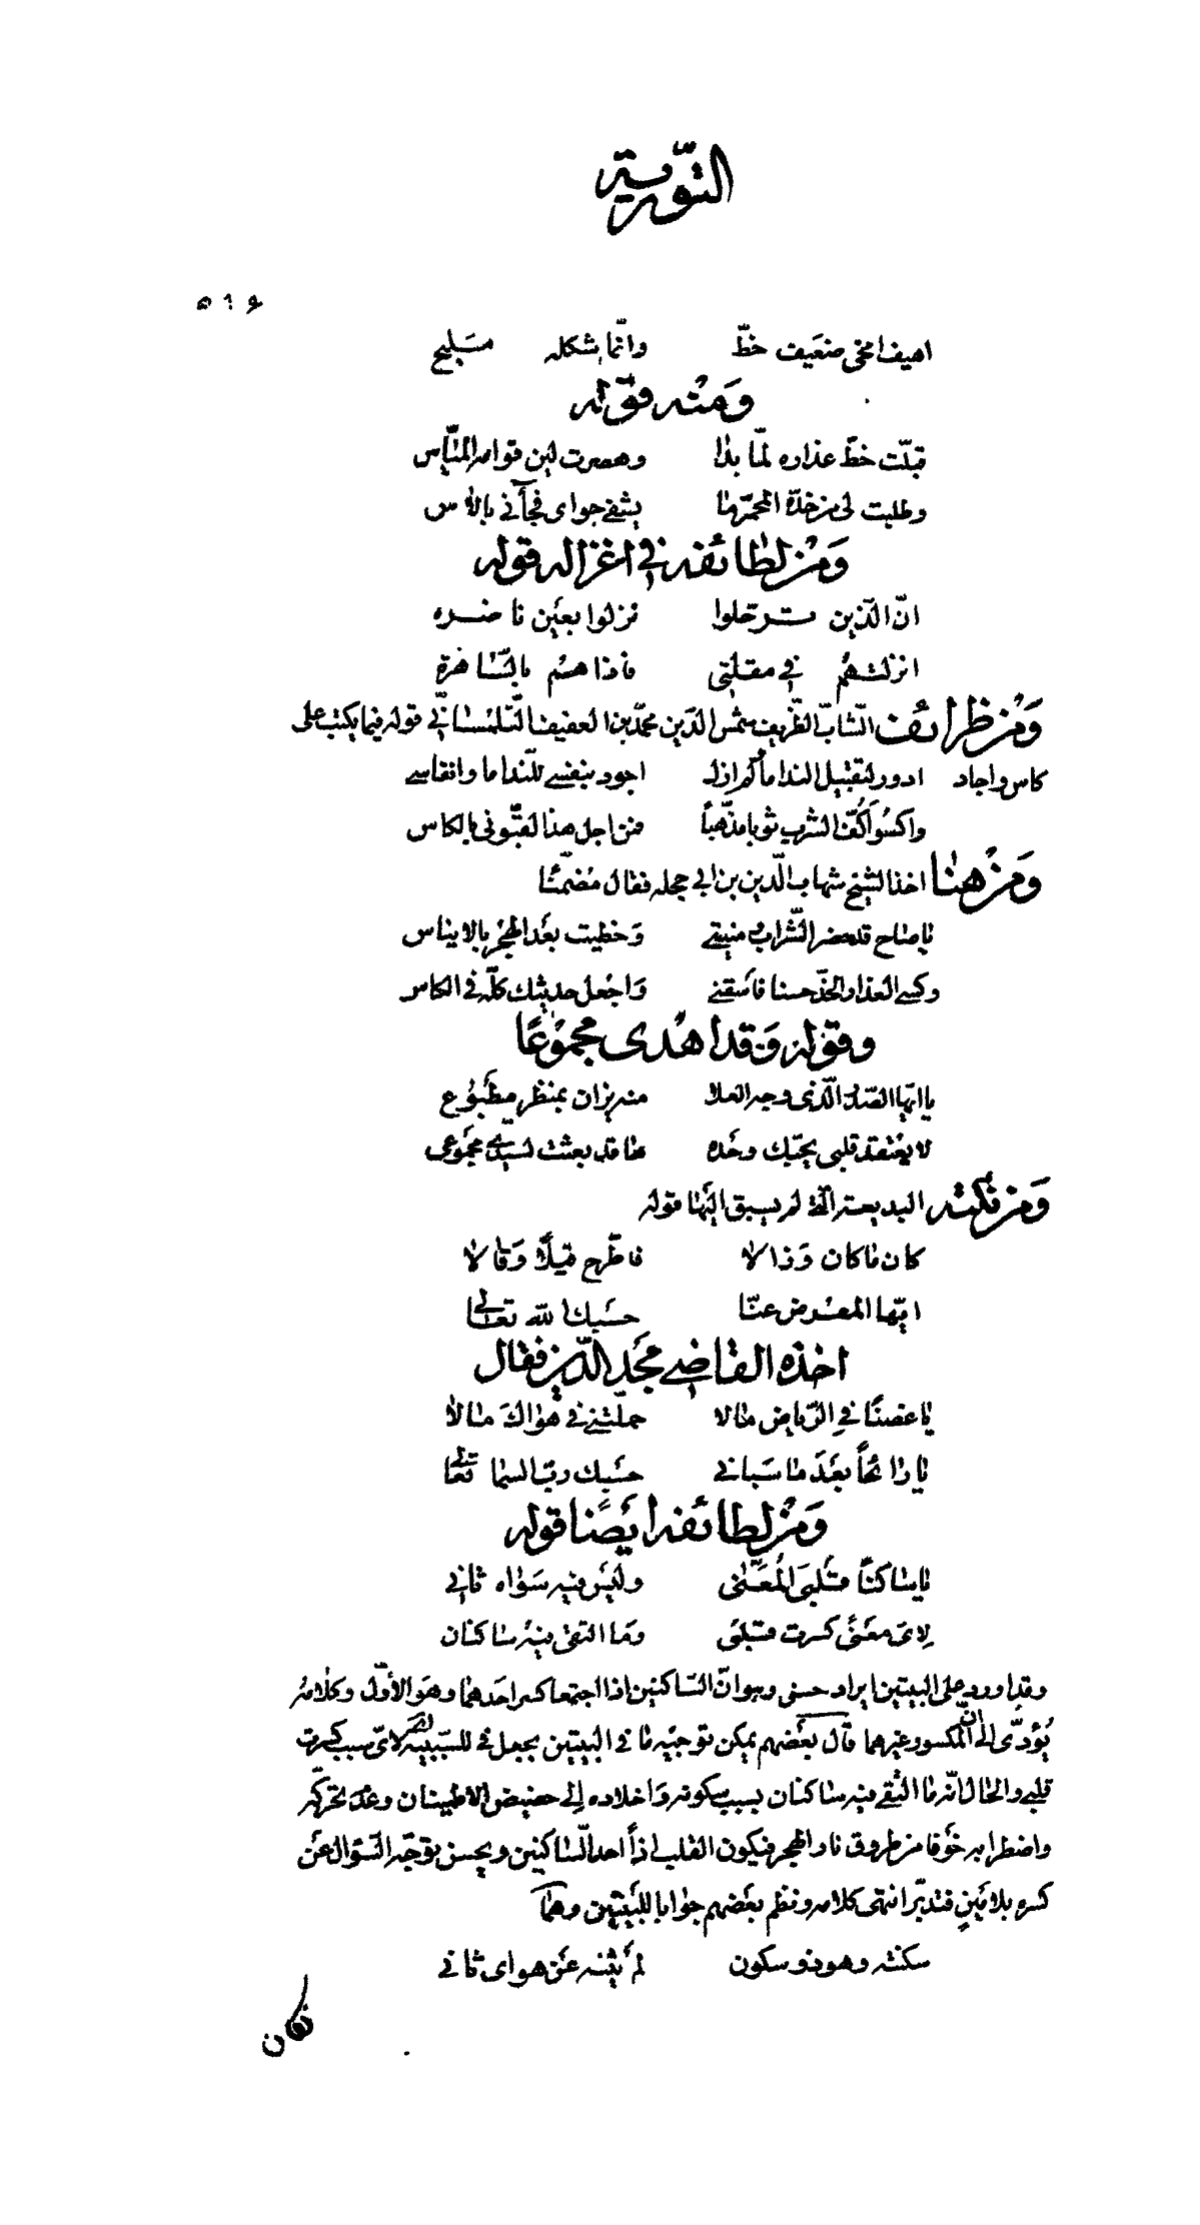 التّورية
٥١٤
اهيفا مخى ضعيف خطّ وانّما شكله مَليح
وَمنه قوله
قبّلت خطّ عذاره لمّا بدا وهصرت لين قوامه الميّاس
وطلبت لى من خدّه المحمرّ ما يشفى جواى فجآنى بالاس
وَمن لطائفه فى اغزاله قوله
انّ الّذين ترحّلوا نزلوا بعين ناضره
انزلتهُم فى مقلتى فاذا هم بالسّاهرة
وَمن ظرائف الشّابّ الظّريف شمس الدّين محمّد بن العفيف التّلمسانّى قوله فيما يكتب على
كاس واجاد ادور لتقبيل الندامآ ولم ازل اجود بنفسى للنّداما وانفاسى
واكسُو اكُفّ الشرب ثوبا مذهّباً فمن اجل هذا لقّبونى بالكاس
وَمن هنا اخذ الشيخ شهاب الدّين بن ابى حجله فقال مُضمّنًا
يا صاح قد حضر الشّراب ومنيتى وَحظيت بعد الهجر بالايناس
وكسى العذار الخدّ حسنا فاسقنى وَاجعل حديثك كلّه فى الكاس
وقوله وَقد اهدى مجموعًا
يا ايّها الصّدر الّذى وجه العلا منه يزان بمنظر مطبُوع
لا يعتقد قلبى بحبّك وحده ها قد بعثت لسيّدى مجمُوعى
وَمن نكته البديعة الّتى لم يسبق اليها قوله
كان ما كان وَزالا فاطّرح قيلًا وَقالا
ايّها المعرض عنّا حسبك اللّه تعالى
اخذه القاضى مجد الدّين فقال
يا غصنًا فى الرّياض مالا حمّلتنى فى هواك مالا
يا رائحاً بعد ما سَبانى حسبك ربّ السما تعالى
وَمن لطائفه ايضًا قوله
يا ساكنًا قلبىَ المُعَنّى وليس فيه سَواه ثانى
لاىّ معنًى كسرت قلبى وَما التقى فيه ساكنان
وقد اورد على البيتين ايراد حسن وهو انّ السّاكنين اذا اجتمعا كسر احدهما وهو الأوّل وكلامه
يُؤدّى الى انّ المكسور غيرهما قال بعضهم يمكن توجيه ما فى البيتين بجعل فى للسّببيّه لاىّ سبب كسرت
قلبى والحال انّه ما التقى فيه ساكنان بسبب سكونه وَاخلاده الى حضيض الاطمينان وعدم تحرّكه
واضطرابه خوفا من طروق نار الهجر فيكون القلب اذاً احد السّاكنين ويحسن توجّه السّؤال عن
كسره بلا مَينٍ فتدبّر انتهى كلامه ونظم بعضهم جوابا للبيتين وهما
سكنته وهو ذو سكون لم يثنه عن هواى ثانى
فكان